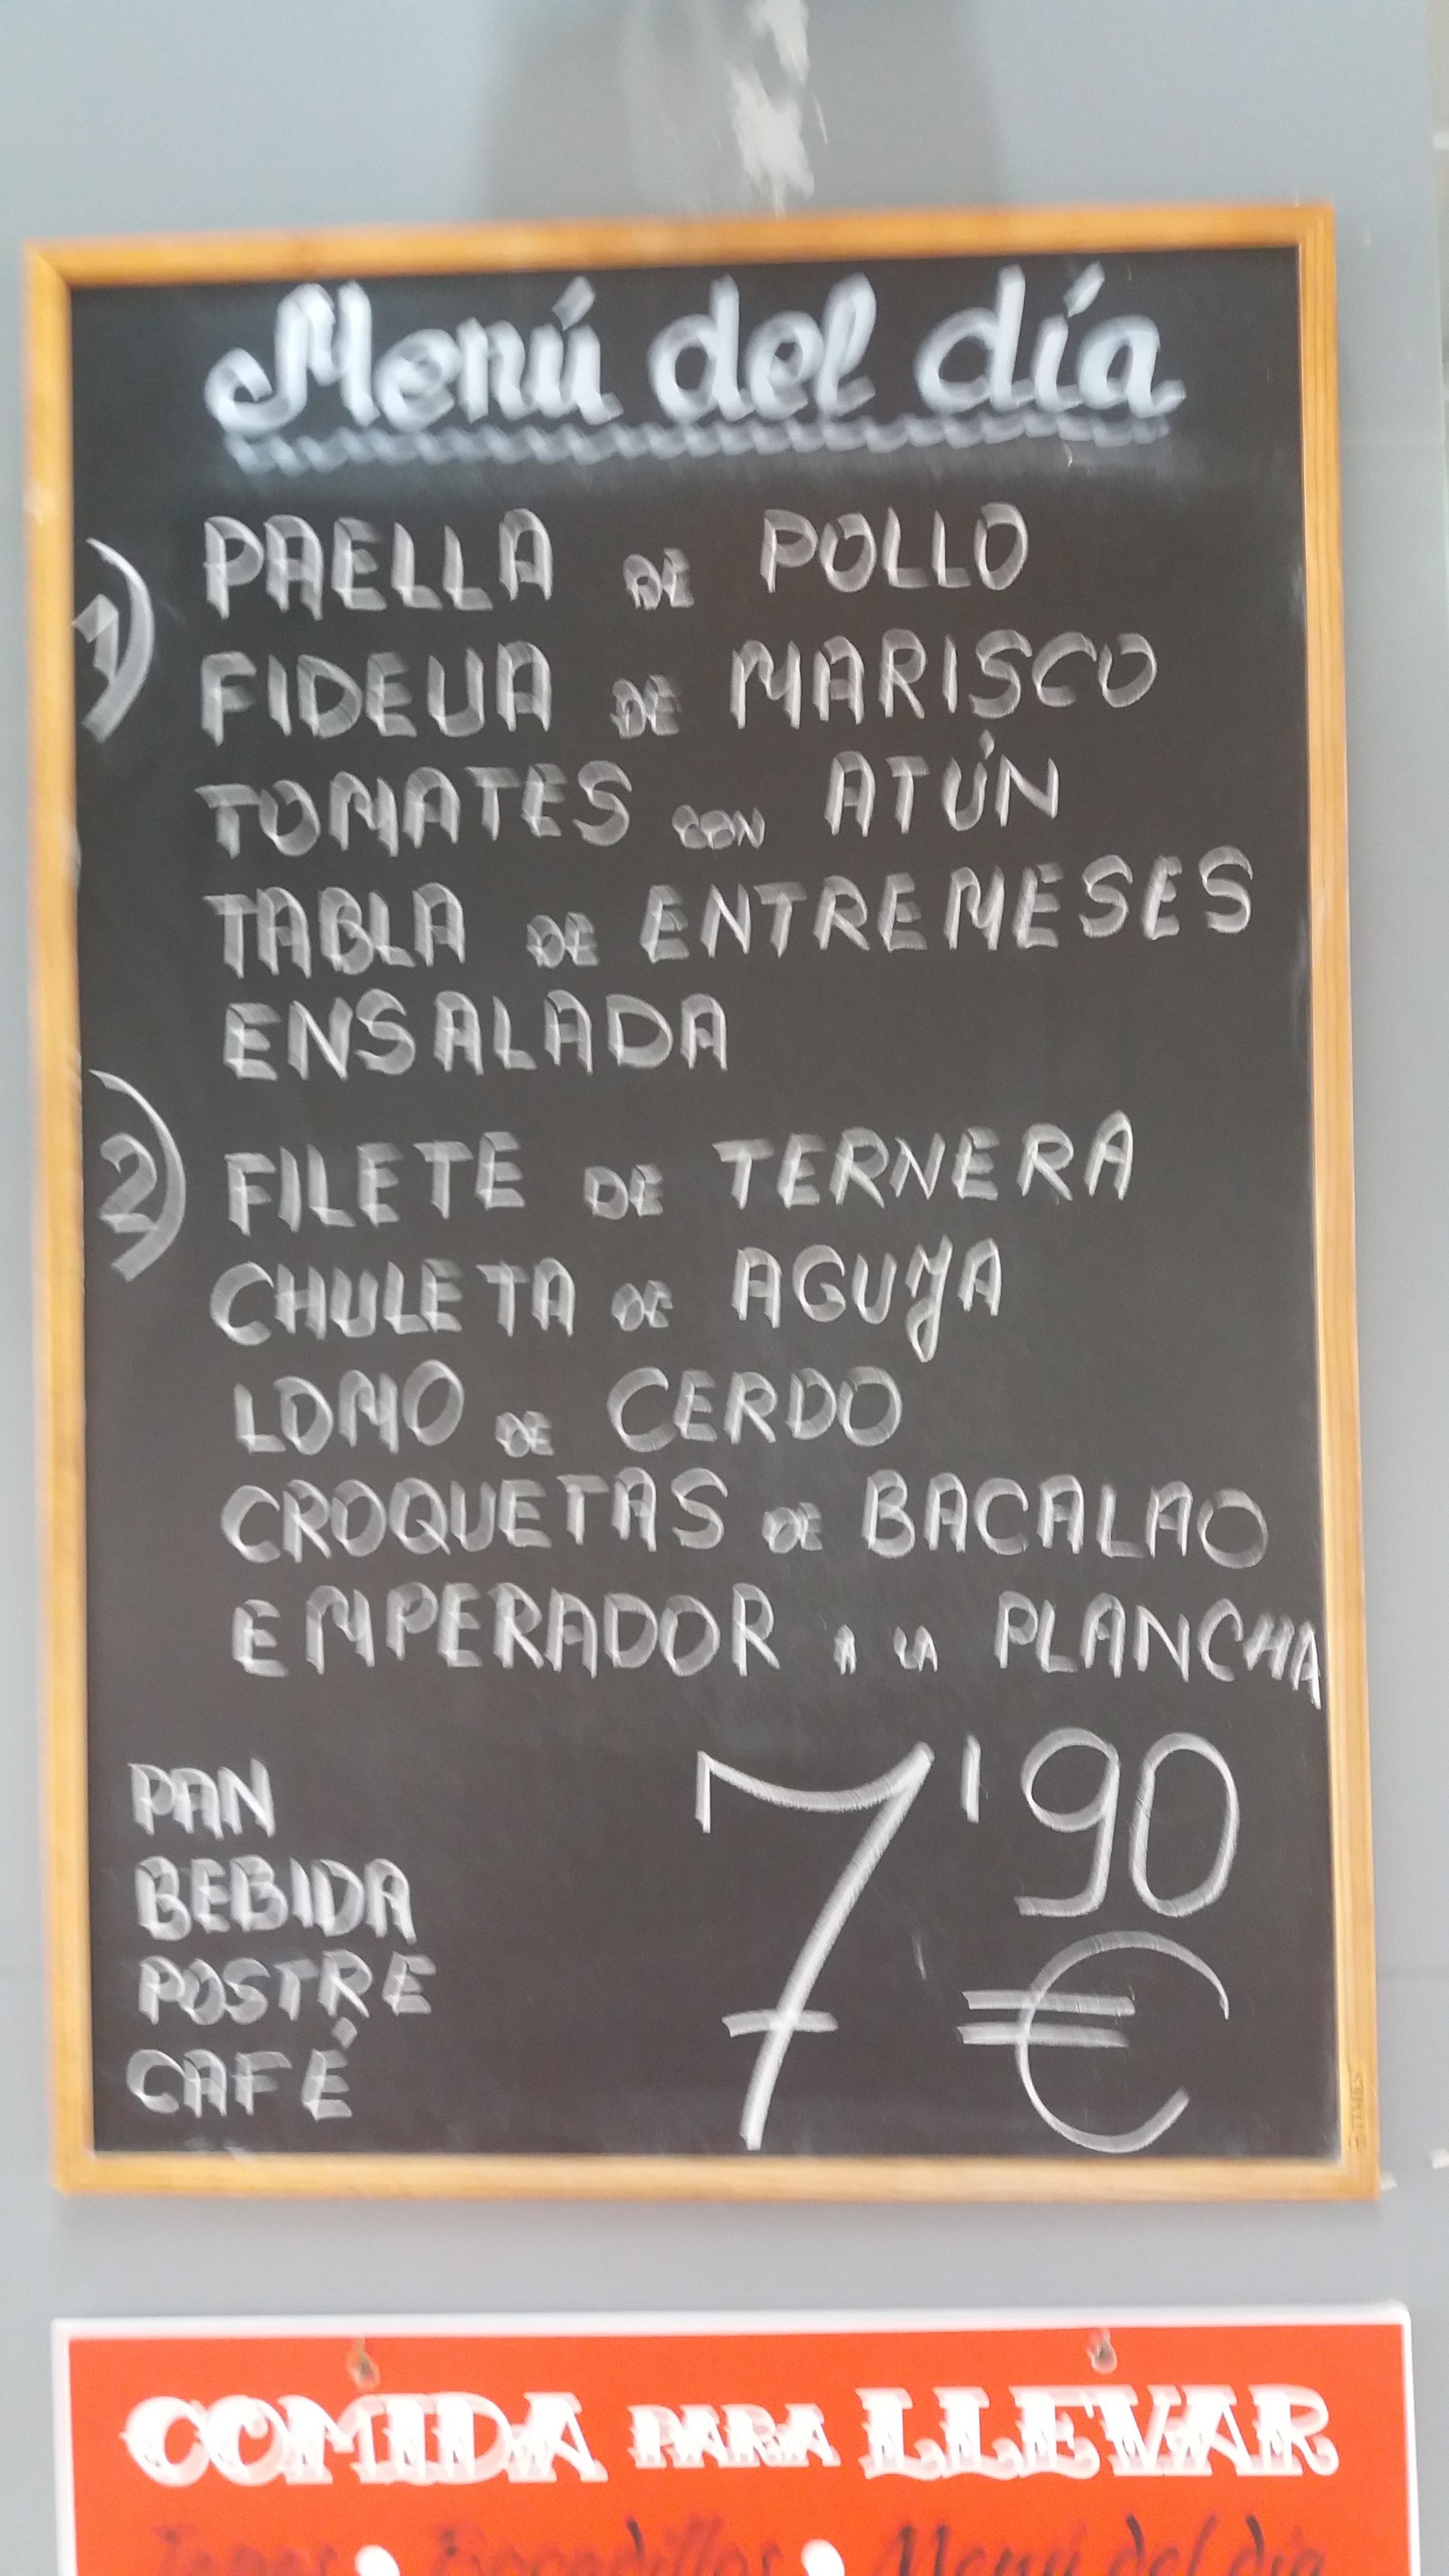 Menú del día
1) PAELLA DE POLLO
FIDEUA DE MARISCO
TOMATES CON ATÚN
TABLA DE ENTREMESES
ENSALADA
2) FILETE DE TERNERA
CHULETA DE AGUJA
LOMO DE CERDO
CROQUETAS DE BACALAO
EMPERADOR A LA PLANCHA
PAN
BEBIDA
POSTRE
CAFÉ
7'90 €
COMIDA PARA LLEVAR
Tapas • Bocadillos • Menú del día